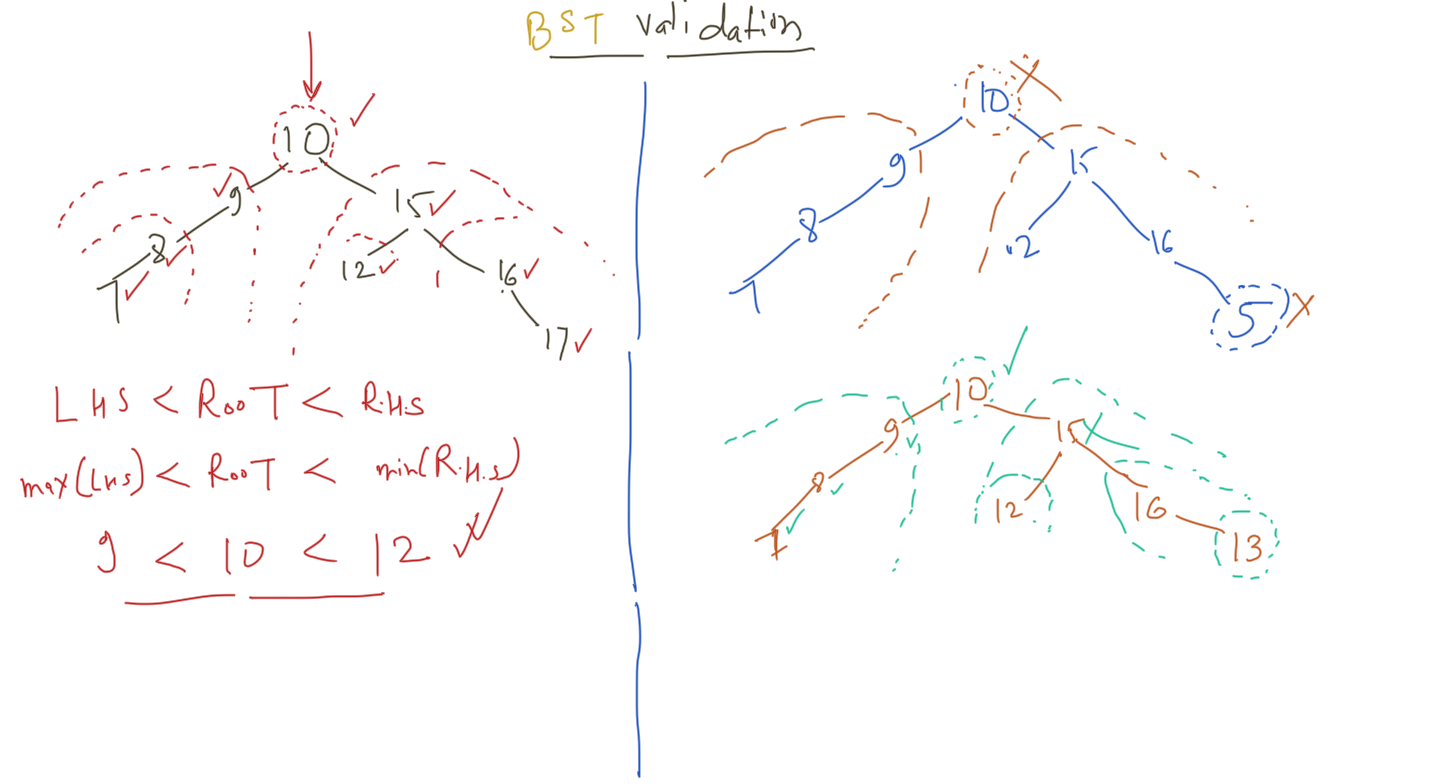 BST validation
10
9 15
8 12 16
7 17
LHS < RooT < R.H.S
max(LHS) < RooT < min(R.H.S)
9 < 10 < 12
10
9 15
8 12 16
7 5
10
9 15
8 12 16
7 13